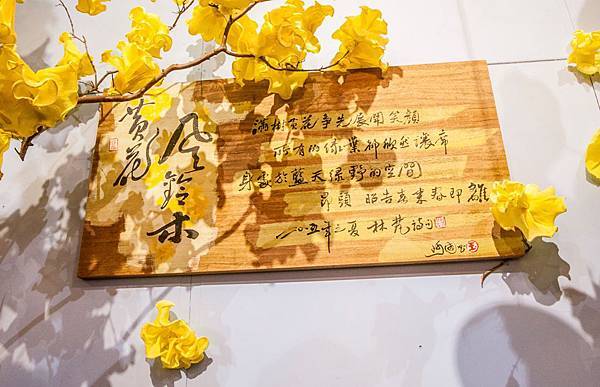 黃花
風鈴木
滿樹黃花爭先展開笑顏
所有的綠葉都欣然讓席
身處於藍天綠野的空間
昂頭 昭告為來春即離
二〇一五年之夏 林梵詩句